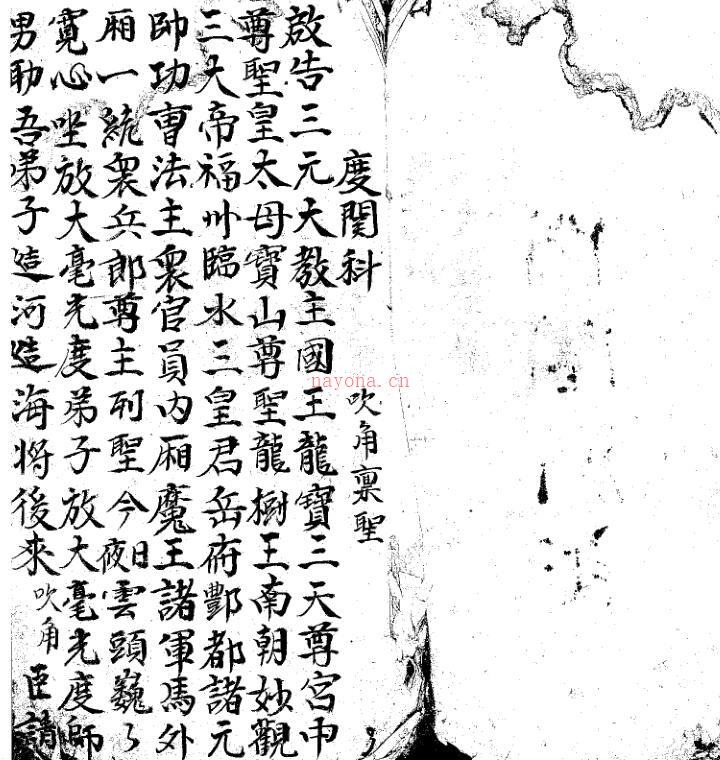 度関科 吹角稟聖
啟告三元大教主國王龍寶三天尊宮中
尊聖皇太母寶山尊聖龍樹王南朝妙觀
三大帝福州臨水三皇君岳府酆都諸元
帥功曹法主衆官員內廂魔王諸軍馬外
廂一統衆兵郎尊主列聖今日夜雲頭巍々
寬心坐放大毫光度弟子放大毫光度師
男助吾弟子造河造海將後來 吹角 臣請
nayona.cn